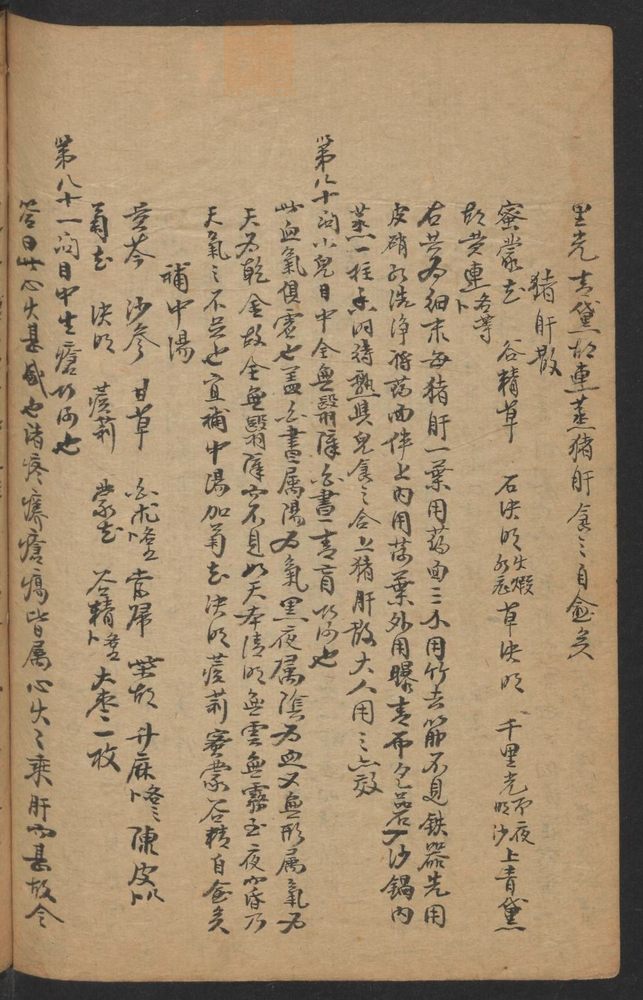 里光青黛胡連蒸猪肝食之自愈矣
猪肝散
蜜蒙花 谷精草 石决明火煅 草决明 千里光即夜明沙 上青黛
胡黄連各等卜
右共为細末每猪肝一葉用药面三小用竹去筋不見鉄器先用
皮硝水洗淨将药面伴上内用荷葉外用青布包若入沙鍋内
蒸一柱香时待熟與兒食之合上猪肝散大人用之亦效
第八十问小兒目中全無翳障白晝一青盲以何也
此血氣俱虚也盖白晝属陽为氣黑夜属陰为血又無形属氣为
天为乾金故全無翳障而不見如天本清明無雲無霧至夜而昏乃
天氣之不足也宜補中湯加菊花决明蒺莉蜜蒙谷精自愈矣
補中湯
黄芩 沙參 甘草 白朮 當歸 柴胡 升麻 陳皮
菊花 决明 蒺莉 蒙花 谷精 大枣一枚
第八十一问目中生瘡以何也
答曰此心火甚盛也諸疼痒瘡瘍皆属心火火乘肝而甚故令